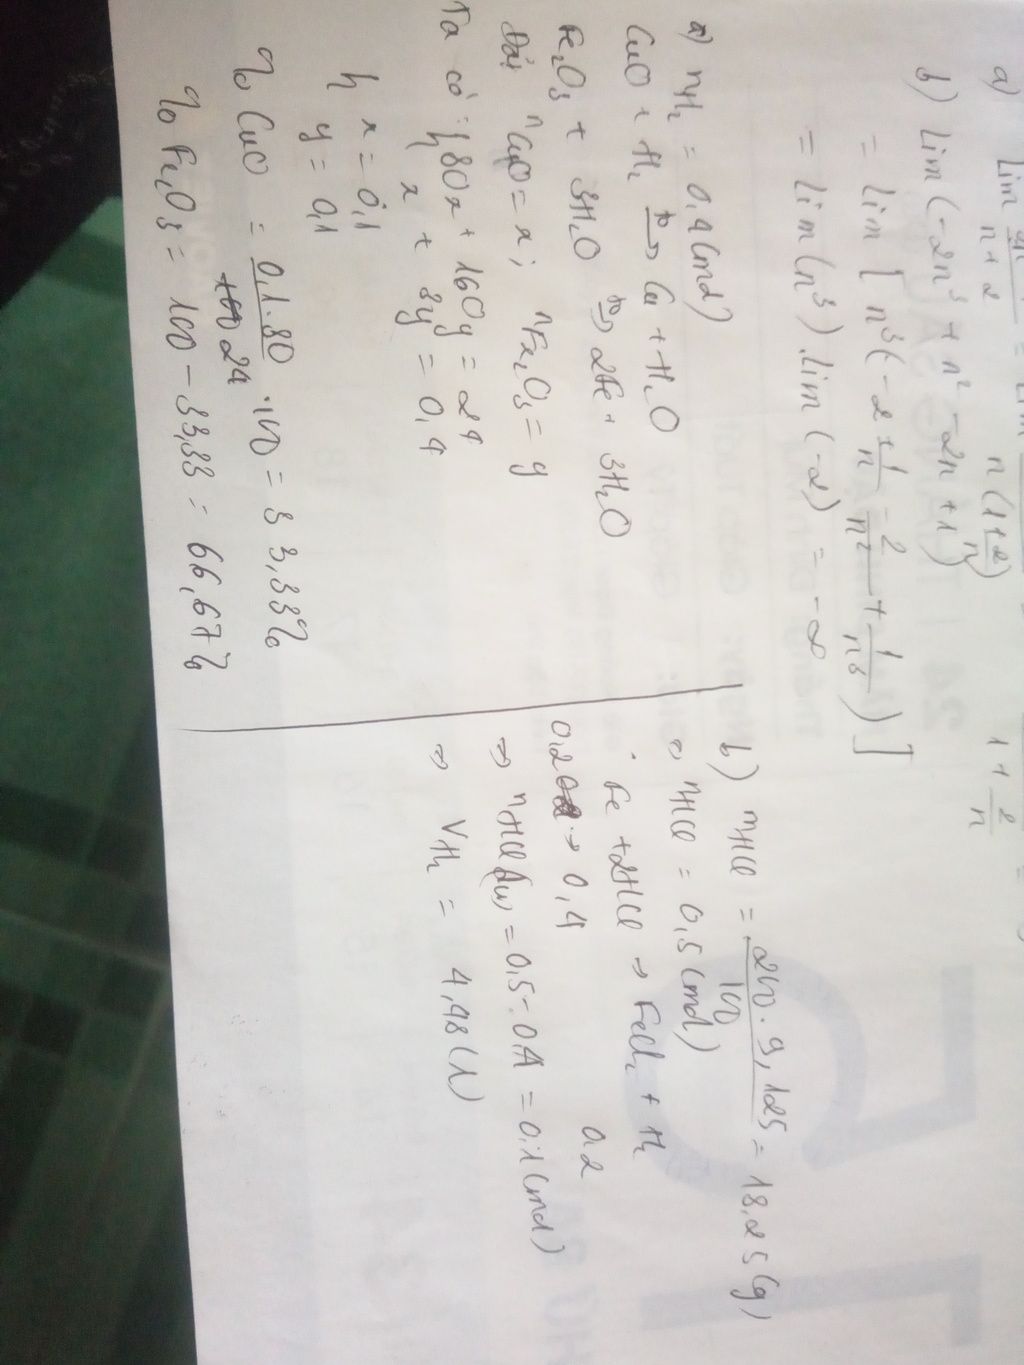 a) lim 2n / n + 2 = lim / n(1 + 2/n) 1 + 2/n =
b) lim (-2n³ + n² - 2n + 1)
= lim [ n³ (-2 + 1/n - 2/n² + 1/n³) ]
= lim (n³) . lim (-2) = -∞
a) nH₂ = 0,4 (mol)
CuO + H₂ t°→ Cu + H₂O
Fe₂O₃ + 3H₂O t°→ 2Fe + 3H₂O
Đặt nCuO = x ; nFe₂O₃ = y
Ta có : { 80x + 160y = 24
x + 3y = 0,4
{ x = 0,1
y = 0,1
% CuO = 0,1 . 80 / 24 . 100 = 33,33%
% Fe₂O₃ = 100 - 33,33 = 66,67%
b) mHCl = 200 . 9,125 / 100 = 18,25 (g)
⇒ nHCl = 0,5 (mol)
Fe + 2HCl → FeCl₂ + H₂
0,2 → 0,4 0,2
⇒ nHCl (dư) = 0,5 - 0,4 = 0,1 (mol)
⇒ VH₂ = 4,48 (l)